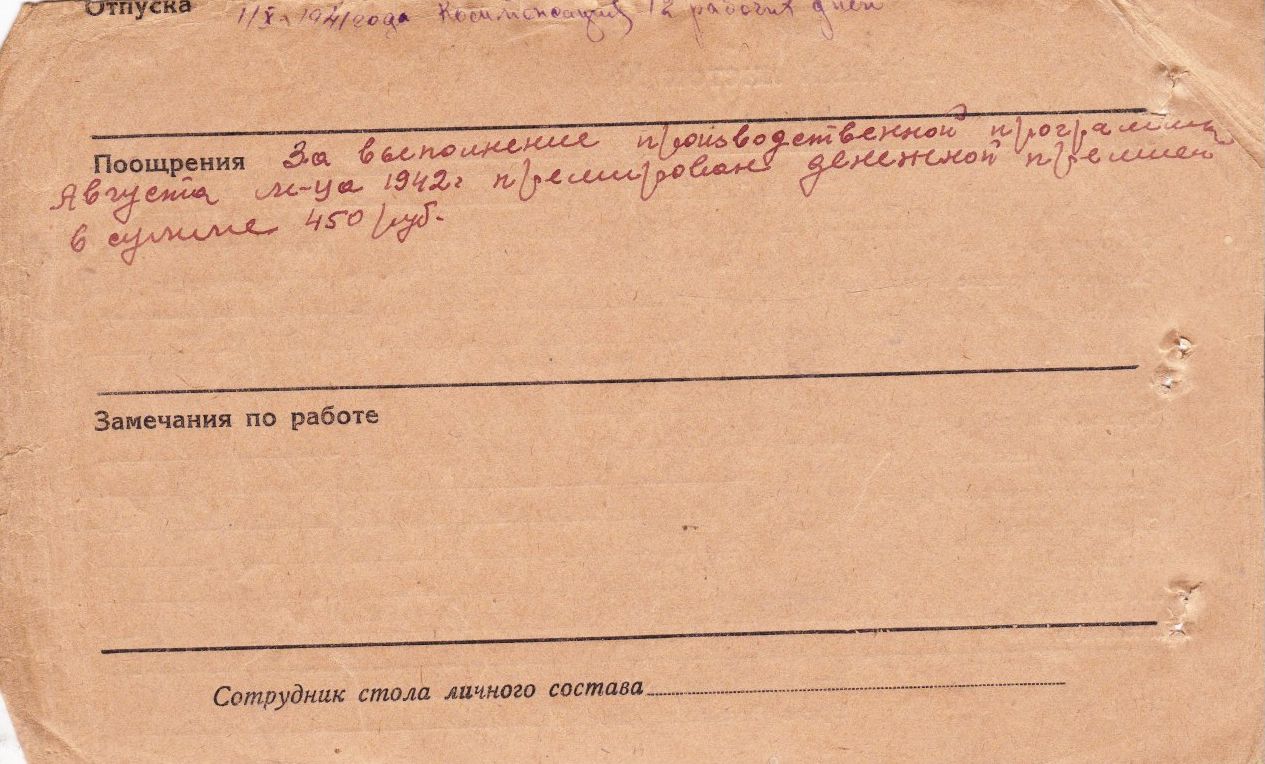 Отпуска 1/X-1941 года Компенсация 12 рабочих дней
Поощрения За выполнение производственной программы
Августа м-ца 1942г премирован денежной премией
в сумме 450 руб.
Замечания по работе
Сотрудник стола личного состава